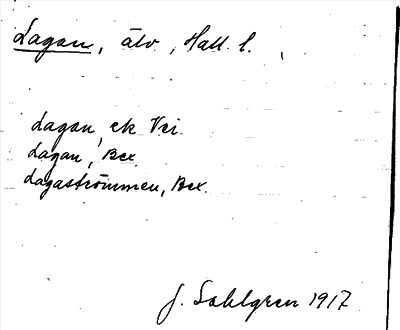 Lagan, älv, Hall. l.
Lagan, ek Vei.
Lagan, Bex.
Lagaströmmen, Bex.
J. Sahlgren 1917